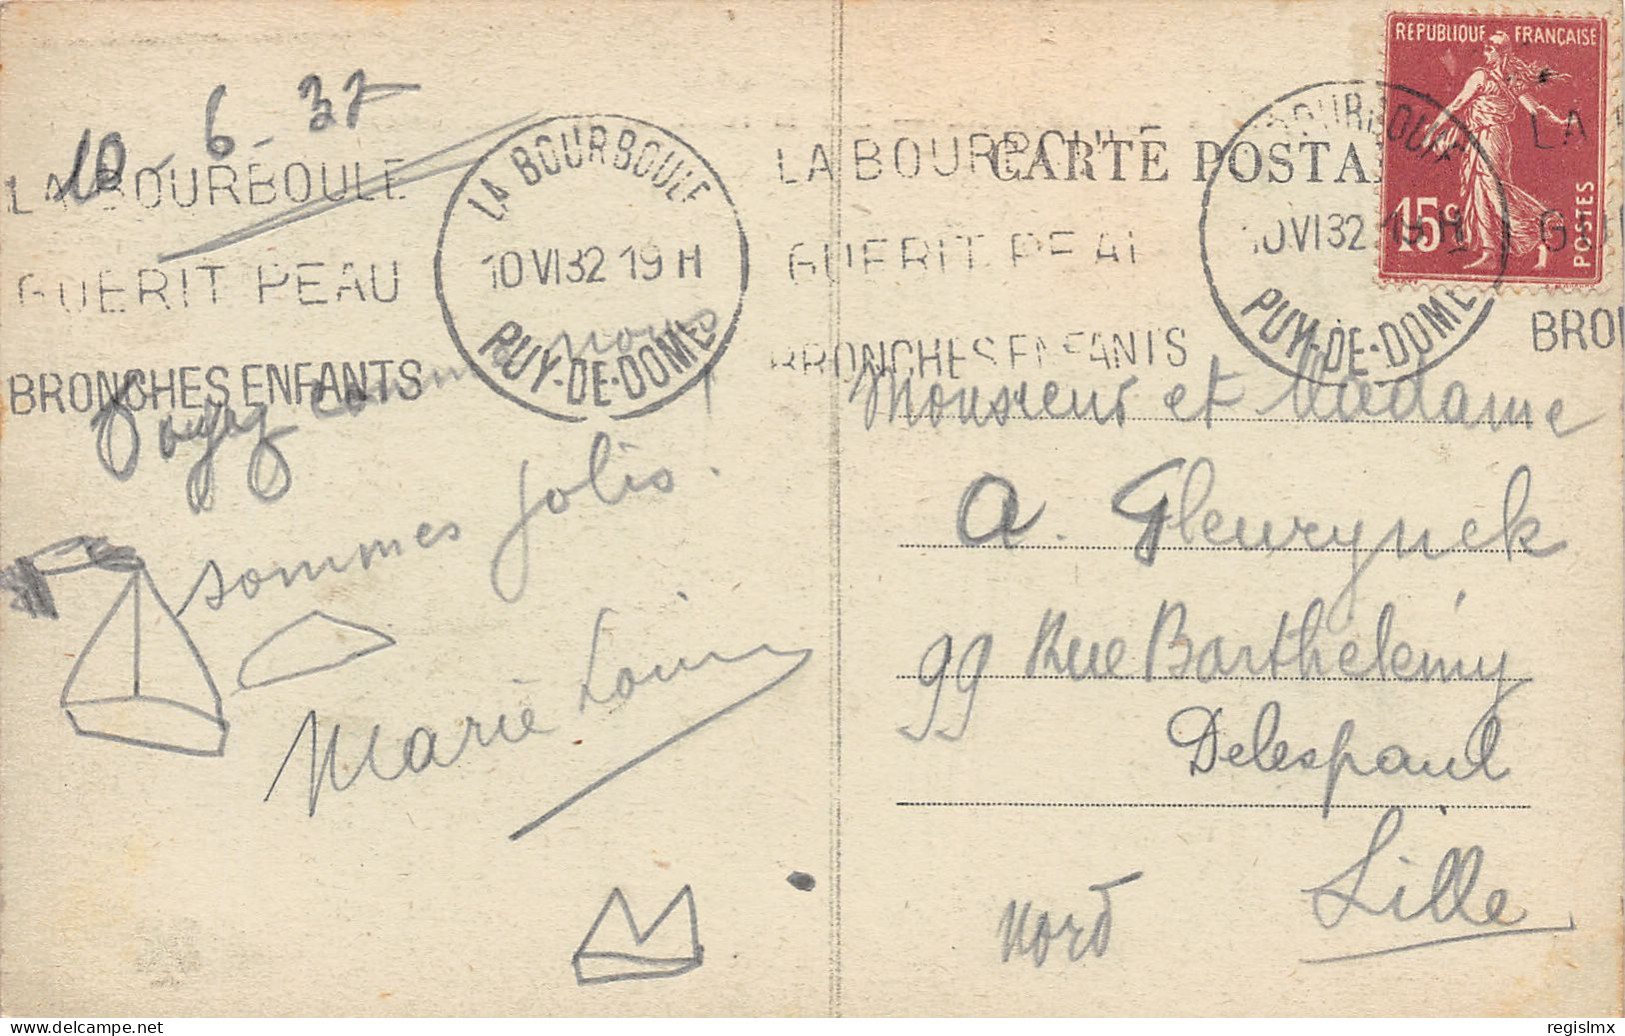 10 - 6 - 32
LA BOURBOULE
GUERIT PEAU
BRONCHES ENFANTS
LA BOURBOULE
10 VI 32 19 H
PUY-DE-DOME
LA BOURBOULE
GUERIT PEAU
BRONCHES ENFANTS
CARTE POSTA
REPUBLIQUE FRANÇAISE
15c
POSTES
BOURBOULE
10 VI 32 19 H
PUY-DE-DOME
LA
GU
BRON
Voyez comme nous
sommes jolis.
Marie Louise
Monsieur et Madame
A. Gleurynck
99 Rue Barthelémy
Delespaul
Lille
Nord
delcampe.net
regislmx